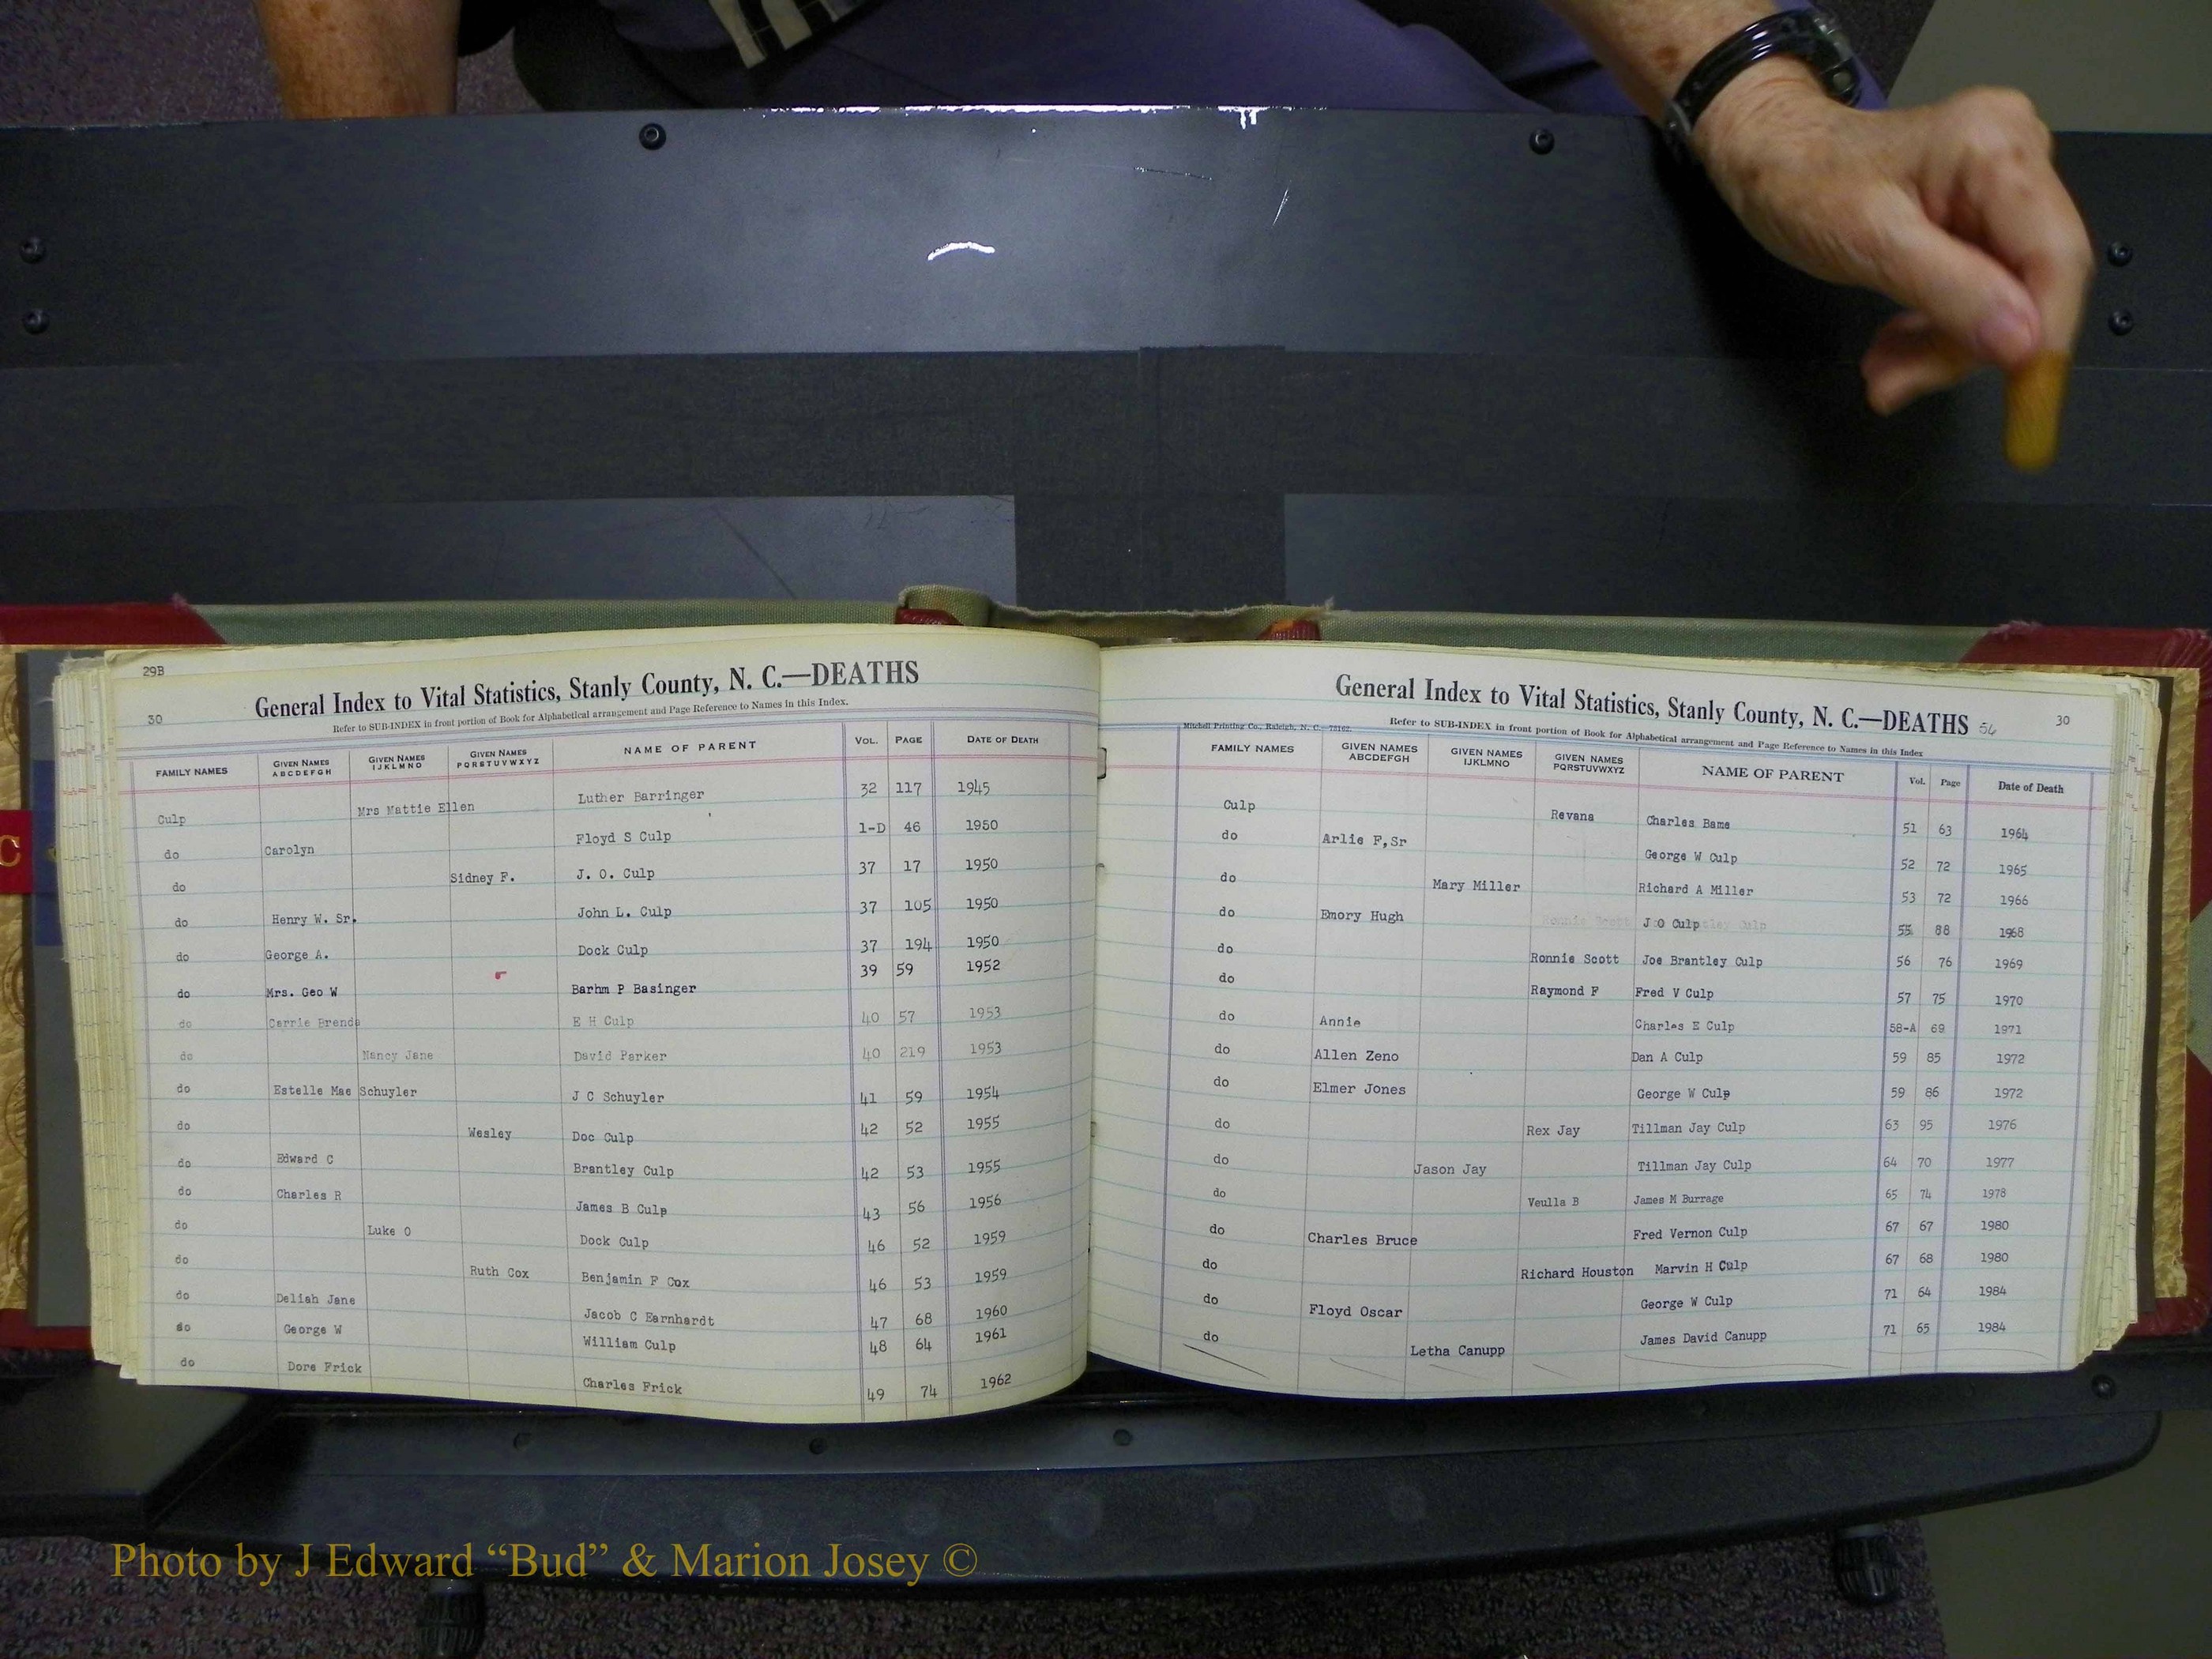 29B
General Index to Vital Statistics, Stanly County, N. C.—DEATHS
30
Refer to SUB-INDEX in front portion of Book for Alphabetical arrangement and Page Reference to Names in this Index.
FAMILY NAMES GIVEN NAMES ABCDEFGH GIVEN NAMES IJKLMNO GIVEN NAMES PQRSTUVWXYZ NAME OF PARENT VOL. PAGE DATE OF DEATH
Culp Mrs Mattie Ellen Luther Barringer 32 117 1945
do Carolyn Floyd S Culp 1-D 46 1950
do Sidney F. J. O. Culp 37 17 1950
do Henry W. Sr. John L. Culp 37 105 1950
do George A. Dock Culp 37 194 1950
do Mrs. Geo W Barhm P Basinger 39 59 1952
do Carrie Brenda E H Culp 40 57 1953
do Nancy Jane David Parker 40 219 1953
do Estelle Mae Schuyler J C Schuyler 41 59 1954
do Wesley Doc Culp 42 52 1955
do Edward C Brantley Culp 42 53 1955
do Charles R James B Culp 43 56 1956
do Luke O Dock Culp 46 52 1959
do Ruth Cox Benjamin F Cox 46 53 1959
do Deliah Jane Jacob C Earnhardt 47 68 1960
do George W William Culp 48 64 1961
do Dore Frick Charles Frick 49 74 1962
General Index to Vital Statistics, Stanly County, N. C.—DEATHS 56 30
Mitchell Printing Co., Raleigh, N. C.—73162. Refer to SUB-INDEX in front portion of Book for Alphabetical arrangement and Page Reference to Names in this Index
FAMILY NAMES GIVEN NAMES ABCDEFGH GIVEN NAMES IJKLMNO GIVEN NAMES PQRSTUVWXYZ NAME OF PARENT Vol. Page Date of Death
Culp Revana Charles Bame 51 63 1964
do Arlie F,Sr George W Culp 52 72 1965
do Mary Miller Richard A Miller 53 72 1966
do Emory Hugh J O Culp 55 88 1968
do Ronnie Scott Joe Brantley Culp 56 76 1969
do Raymond F Fred V Culp 57 75 1970
do Annie Charles E Culp 58-A 69 1971
do Allen Zeno Dan A Culp 59 85 1972
do Elmer Jones George W Culp 59 86 1972
do Rex Jay Tillman Jay Culp 63 95 1976
do Jason Jay Tillman Jay Culp 64 70 1977
do Veulla B James M Burrage 65 74 1978
do Charles Bruce Fred Vernon Culp 67 67 1980
do Richard Houston Marvin H Culp 67 68 1980
do Floyd Oscar George W Culp 71 64 1984
do Letha Canupp James David Canupp 71 65 1984
C
Photo by J Edward “Bud” & Marion Josey ©